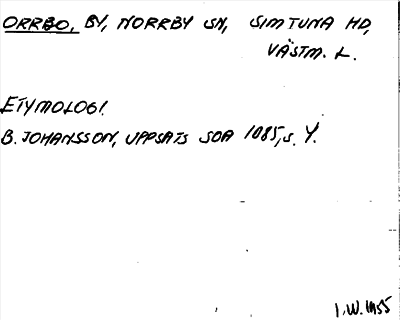 ORRBO, BY, NORRBY SN, SIMTUNA HD,
VÄSTM. L.
ETYMOLOGI.
B. JOHANSSON, UPPSATS SOA 1085, s. 4.
I.W. 1955